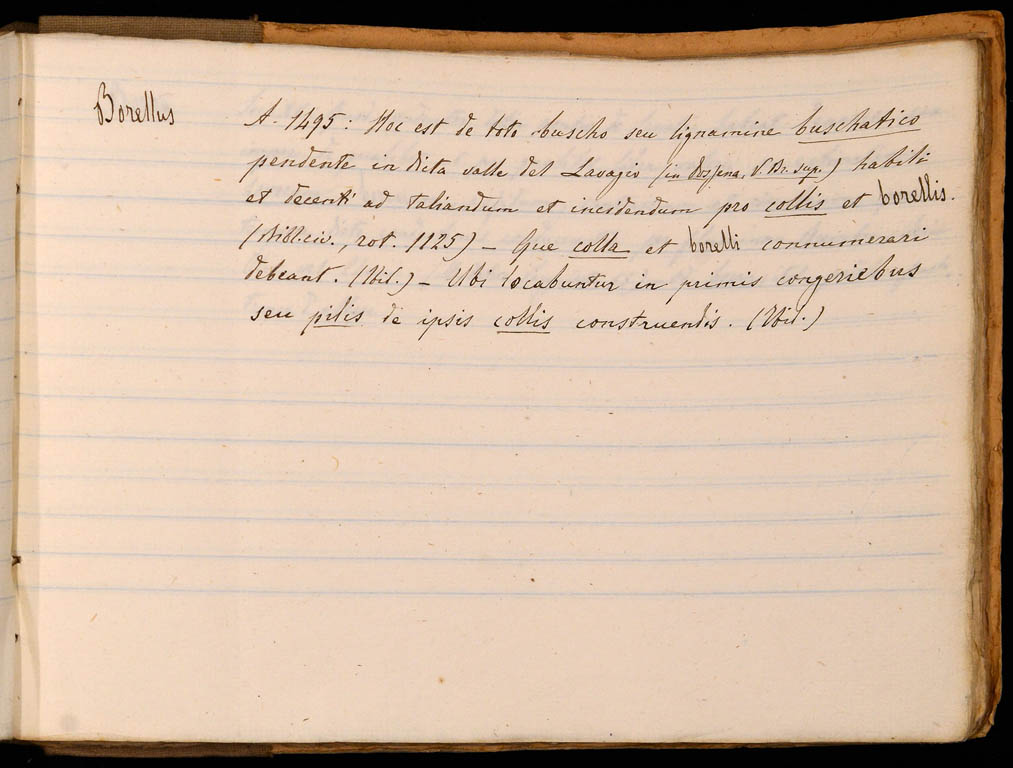 Borellus
A. 1495: Hoc est de toto buscho seu lignamine buschatico
pendente in dicta valle del Lavagio (in Dossena, V. Br. sup.) habili
et decenti ad taliandum et incidendum pro collis et borellis.
(Bibl. civ., rot. 1125) – Que colla et borelli connumerari
debeant. (Ibid.) – Ubi locabuntur in primis congeriebus
seu pilis de ipsis collis construendis. (Ibid.)